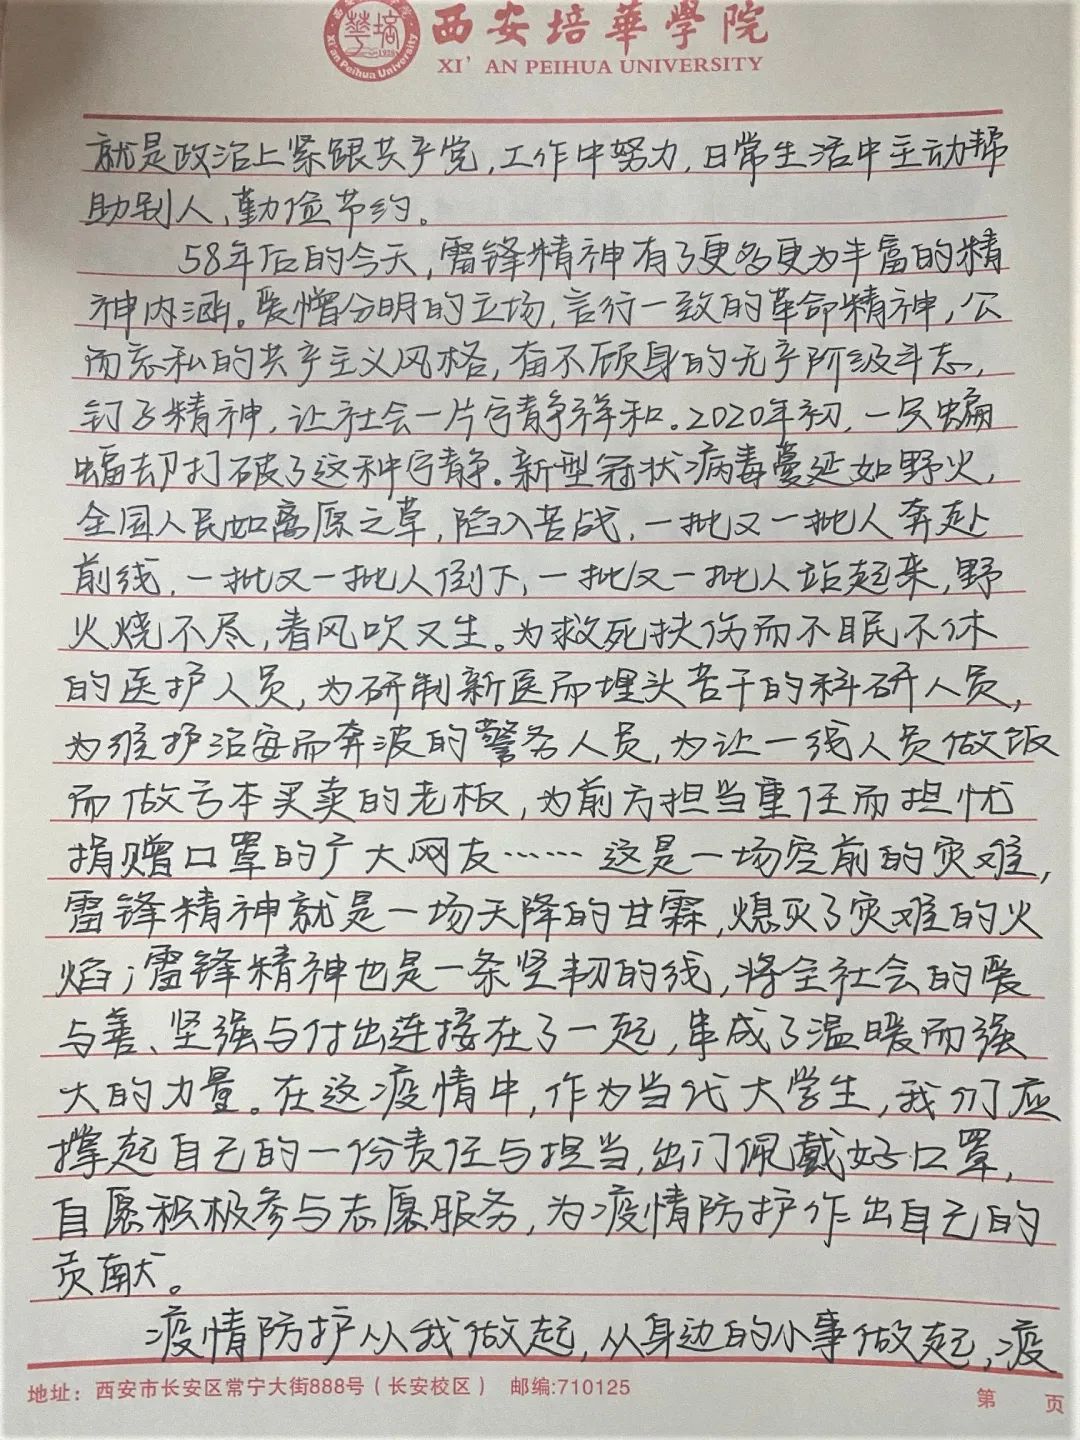 西安培華學院
XI'AN PEIHUA UNIVERSITY
就是政治上紧跟共产党,工作中努力,日常生活中主动帮
助别人,勤俭节约。
58年后的今天,雷锋精神有了更多更为丰富的精
神内涵。爱憎分明的立场,言行一致的革命精神,公
而忘私的共产主义风格,奋不顾身的无产阶级斗志,
钉子精神,让社会一片宁静祥和。2020年初,一只蝙
蝠却打破了这种宁静。新型冠状病毒蔓延如野火,
全国人民如离原之草,陷入苦战,一批又一批人奔赴
前线,一批又一批人倒下,一批又一批人站起来,野
火烧不尽,春风吹又生。为救死扶伤而不眠不休
的医护人员,为研制新医而埋头苦干的科研人员,
为维护治安而奔波的警务人员,为让一线人员做饭
而做亏本买卖的老板,为前方担当重任而担忧
捐赠口罩的广大网友……这是一场空前的灾难,
雷锋精神就是一场天降的甘霖,熄灭了灾难的火
焰;雷锋精神也是一条坚韧的线,将全社会的爱
与善、坚强与付出连接在了一起,串成了温暖而强
大的力量。在这疫情中,作为当代大学生,我们应
撑起自己的一份责任与担当,出门佩戴好口罩,
自愿积极参与志愿服务,为疫情防护作出自己的
贡献。
疫情防护从我做起,从身边的小事做起,疫
地址:西安市长安区常宁大街888号(长安校区) 邮编:710125
第 页